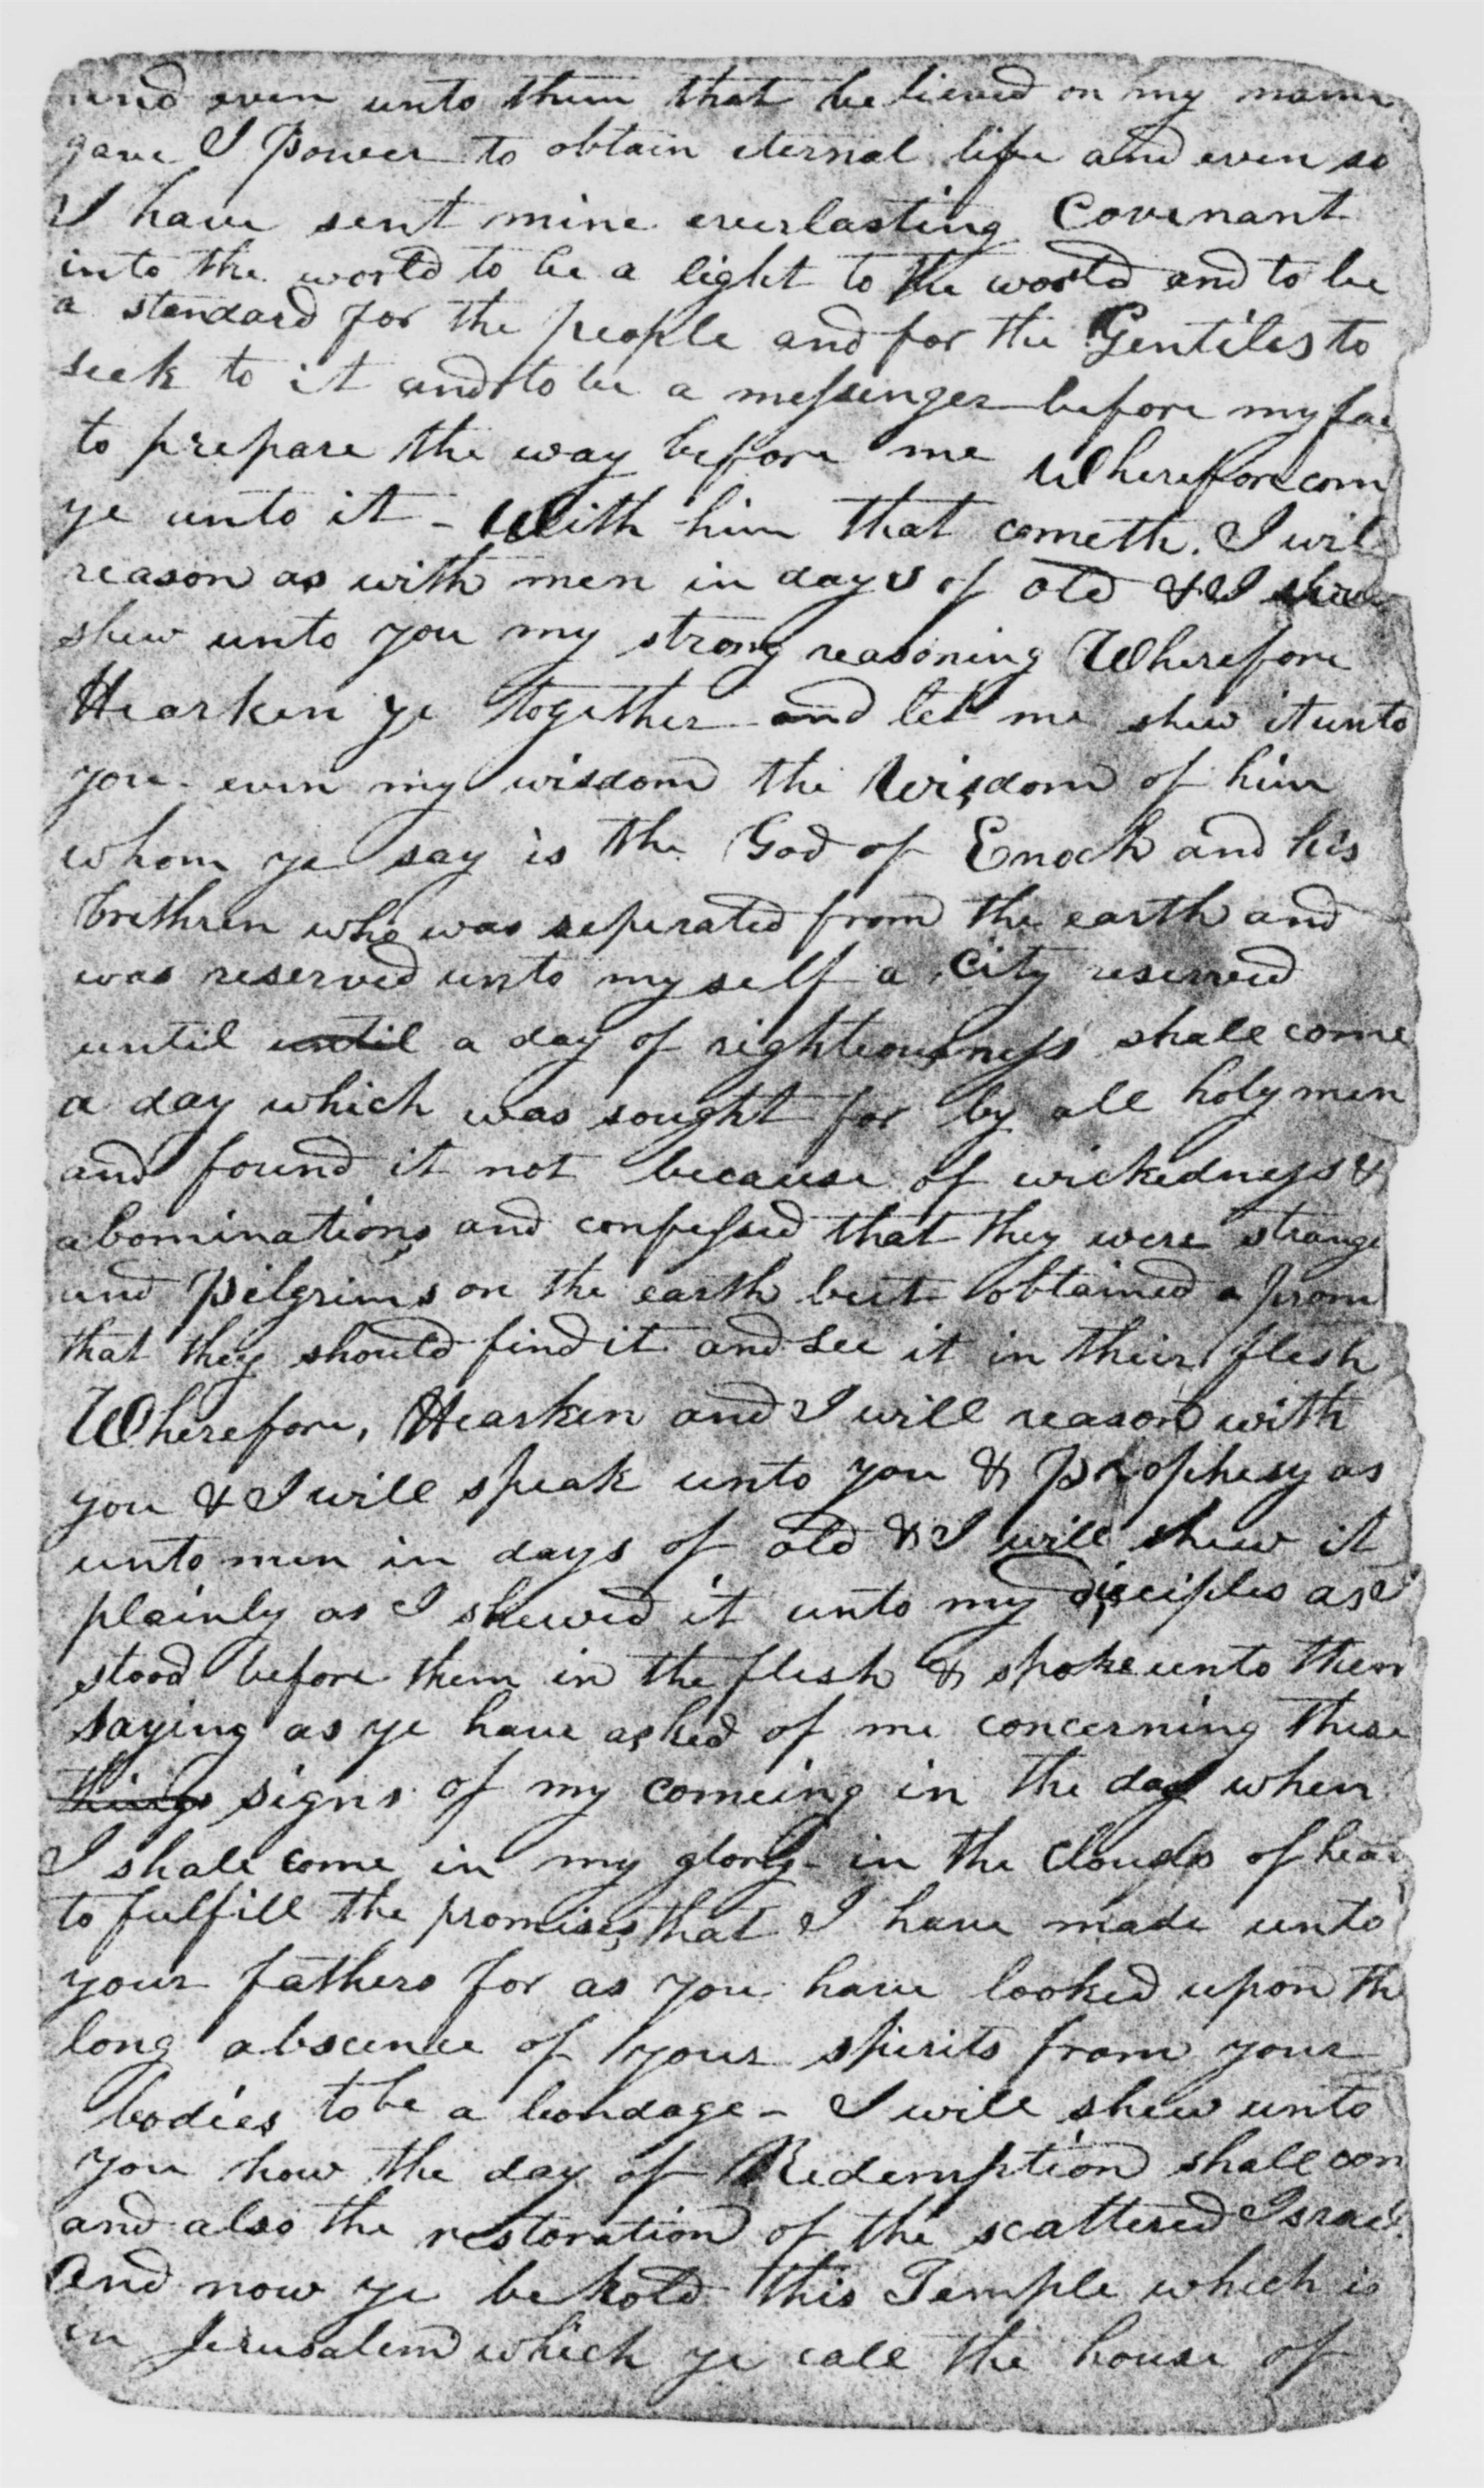 and even unto them that believed on my name
gave I Power to obtain eternal life and even so
I have sent mine everlasting Covenant
into the world to be a light to the world and to be
a standard for the people and for the Gentiles to
seek to it and to be a messenger before my fac
to prepare the way before me Wherefore com
ye unto it - With him that cometh. I wil
reason as with men in days of old & I shall
shew unto you my strong reasoning Wherefore
Hearken ye together and let me shew it unto
you - even my wisdom the Wisdom of him
whom ye say is the God of Enoch and his
brethren who was seperated from the earth and
was reserved unto myself a City reserved
until until a day of righteousness shall come
a day which was sought for by all holy men
and found it not because of wickedness &
abominations and confessed that they were strange
and Pilgrims on the earth but obtained a prom
that they should find it and see it in their flesh
Wherefore, Hearken and I will reason with
you & I will speak unto you & Prophesy as
unto men in days of old & I will shew it
plainly as I shewed it unto my disciples as I
stood before them in the flesh & spoke unto them
saying as ye have asked of me concerning these
things signs of my comeing in the day when
I shall come in my glory - in the Clouds of heav
to fulfill the promises that I have made unto
your fathers for as you have looked upon the
long abscence of your spirits from your
bodies to be a bondage - I will shew unto
you how the day of Redemption shall com
and also the restoration of the scattered Israel.
And now ye behold this Temple which is
in Jerusalem which ye call the house of